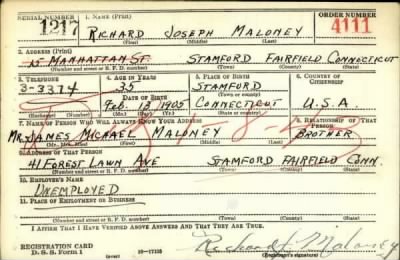 SERIAL NUMBER 1. NAME (Print) ORDER NUMBER
1217 RICHARD JOSEPH MALONEY 4111
(First) (Middle) (Last)
2. ADDRESS (Print)
15 MANHATTAN ST. STAMFORD FAIRFIELD CONNECTICUT
(Number and street or R. F. D. number) (Town) (County) (State)
3. TELEPHONE 4. AGE IN YEARS 5. PLACE OF BIRTH 6. COUNTRY OF CITIZENSHIP
3-3374 35 STAMFORD
DATE OF BIRTH (Town or county)
Feb. 13 1905 CONNECTICUT U.S.A.
(Exchange) (Number) (Mo.) (Day) (Yr.) (State or country)
7. NAME OF PERSON WHO WILL ALWAYS KNOW YOUR ADDRESS 8. RELATIONSHIP OF THAT PERSON
MR. JAMES MICHAEL MALONEY BROTHER
(Mr., Mrs., Miss) (First) (Middle) (Last)
9. ADDRESS OF THAT PERSON
41 FOREST LAWN AVE STAMFORD FAIRFIELD CONN.
(Number and street or R. F. D. number) (Town) (County) (State)
10. EMPLOYER'S NAME
UNEMPLOYED
11. PLACE OF EMPLOYMENT OR BUSINESS
(Number and street or R. F. D. number) (Town) (County) (State)
I AFFIRM THAT I HAVE VERIFIED ABOVE ANSWERS AND THAT THEY ARE TRUE.
REGISTRATION CARD
D. S. S. Form 1 16-17105 Richard J. Maloney
(Registrant's signature)